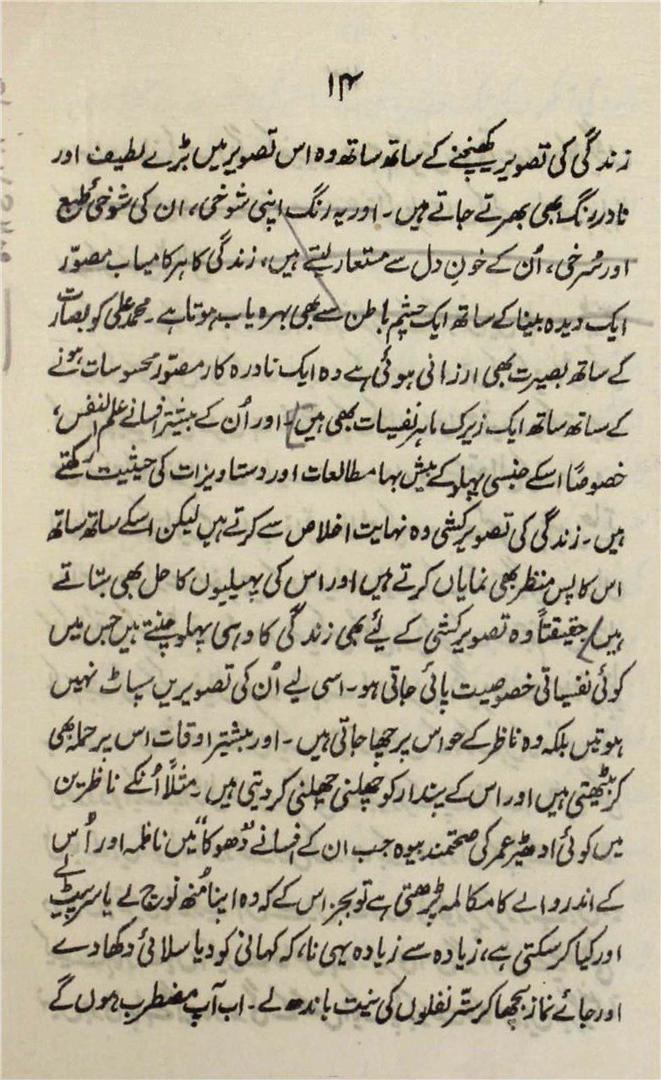 ۱۴
زندگی کی تصویر کھینچنے کے ساتھ ساتھ وہ اس تصویر میں بڑے لطیف اور
نادر رنگ بھی بھرتے جاتے ہیں۔ اور یہ رنگ اپنی شوخی، ان کی شوخیٔ طبع
اور سُرخی، اُن کے خونِ دل سے مستعار لیتے ہیں، زندگی کا ہر کامیاب مصوّر
ایک دیدہ بینا کے ساتھ ایک چشمِ باطن سے بھی بہرہ یاب ہوتا ہے۔ محمد علی کو بصارت
کے ساتھ بصیرت بھی ارزانی ہوئی ہے وہ ایک نادرہ کار مصوّر محسوسات ہونے
کے ساتھ ساتھ ایک زیرک ماہر نفسیات بھی ہیں اور اُن کے بیشتر افسانے علم النفس،
خصوصاً اسکے جنسی پہلو کے بیش بہا مطالعات اور دستاویزات کی حیثیت رکھتے
ہیں۔ زندگی کی تصویر کشی وہ نہایت اخلاص سے کرتے ہیں لیکن اسکے ساتھ ساتھ
اس کا پس منظر بھی نمایاں کرتے ہیں اور اس کی پہیلیوں کا حل بھی بتاتے
ہیں حقیقتاً وہ تصویر کشی کے لئے بھی زندگی کا وہی پہلو چنتے ہیں جس میں
کوئی نفسیاتی خصوصیت پائی جاتی ہو۔ اسی لیے اُن کی تصویریں سپاٹ نہیں
ہوتیں بلکہ وہ ناظر کے حواس پر چھا جاتی ہیں۔ اور بیشتر اوقات اس پر حملہ بھی
کر بیٹھتی ہیں اور اس کے پندار کو چھلنی چھلنی کر دیتی ہیں۔ مثلاً اُنکے ناظرین
میں کوئی ادھیڑ عمر کی صحتمند بیوہ جب ان کے افسانے "دھوکا" میں ناظمہ اور اُس
کے اندر والے کا مکالمہ پڑھتی ہے تو بجز اس کے کہ وہ اپنا منھ نوچ لے یا سر پیٹ لے
اور کیا کر سکتی ہے، زیادہ سے زیادہ یہی نا، کہ کہانی کو دیا سلائی دکھا دے
اور جائے نماز بچھا کر ستّر نفلوں کی نیت باندھ لے۔ اب آپ مضطرب ہوں گے